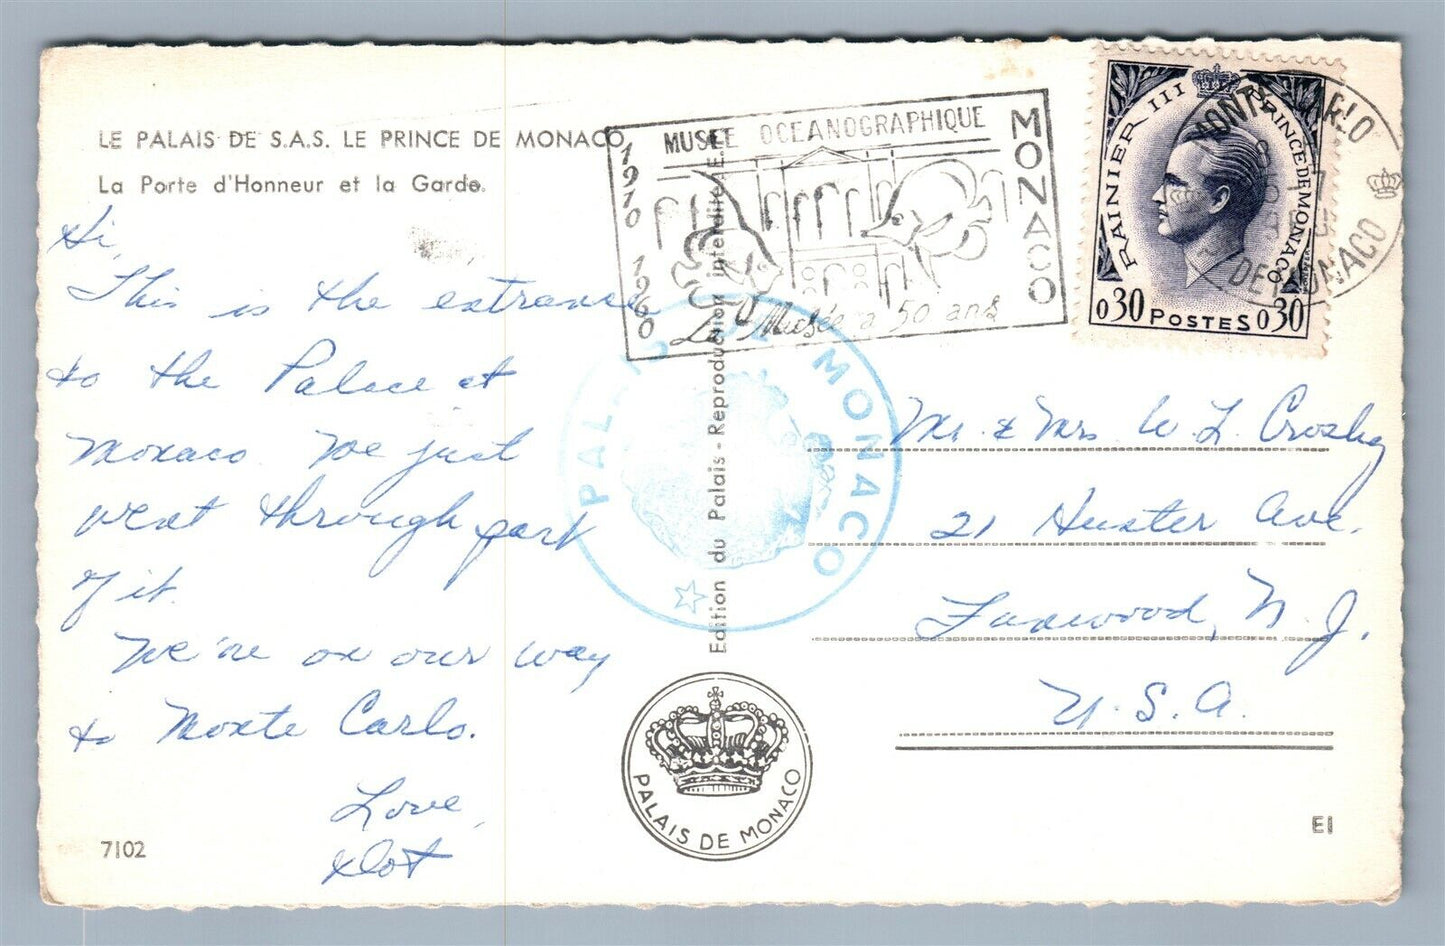 LE PALAIS DE S.A.S. LE PRINCE DE MONACO
La Porte d'Honneur et la Garde.
Hi,
This is the entrance
to the Palace at
Monaco. We just
went through part
of it.
We're on our way
to Monte Carlo.
Love,
7102
Edition du Palais - Reproduction interdite A.E.
PALAIS DE MONACO
PALAIS DE MONACO
MUSEE OCEANOGRAPHIQUE
MONACO
1970 1960
Le Musée a 50 ans
RAINIER III PRINCE DE MONACO
0,30 POSTES 0,30
MONTE-CARLO
PTE DE MONACO
Mr. & Mrs W. L. Crosby
21 Hunter Ave.
Fanwood, N. J.
U.S.A.
EI